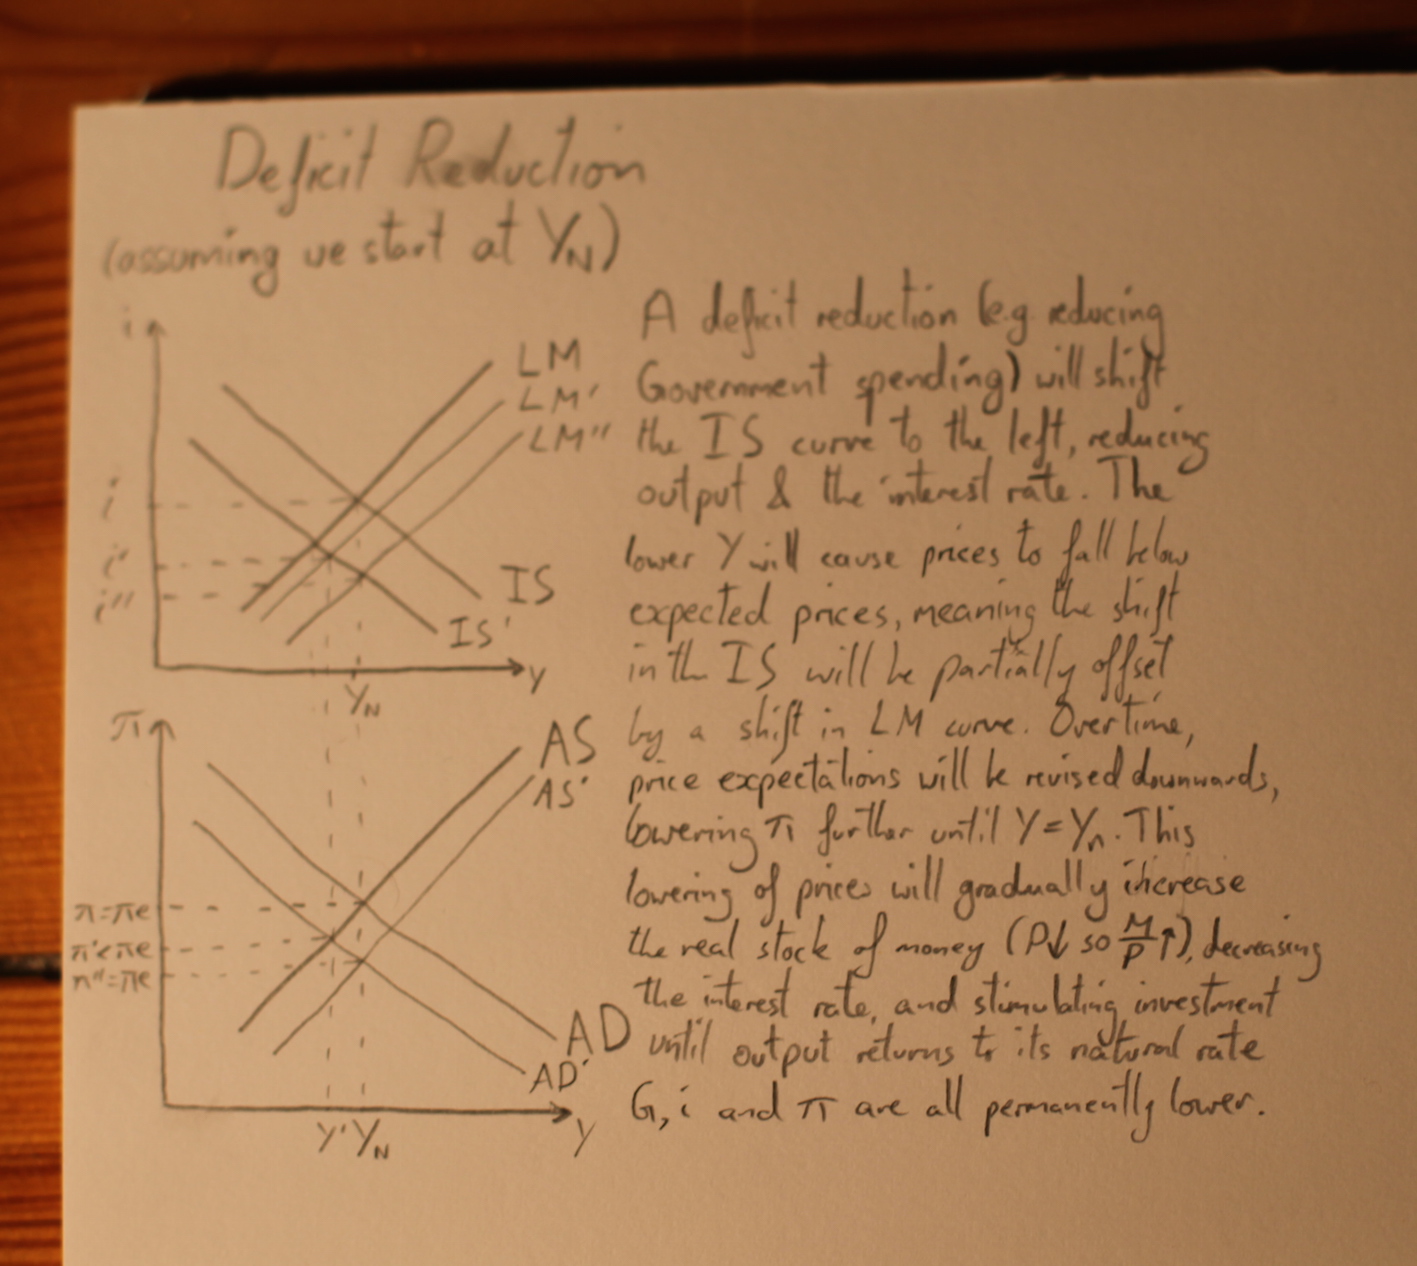 Deficit Reduction
(assuming we start at YN)
i
LM
LM'
LM''
i
i'
i''
IS
IS'
y
YN
π
AS
AS'
π=πe
π'<πe
π''=πe
AD
AD'
Y' YN
y
A deficit reduction (e.g reducing
Government spending) will shift
the IS curve to the left, reducing
output & the interest rate. The
lower Y will cause prices to fall below
expected prices, meaning the shift
in th IS will be partially offset
by a shift in LM curve. Over time,
price expectations will be revised downwards,
lowering π further until Y=Yn. This
lowering of prices will gradually increase
the real stock of money (P↓ so M/P↑), decreasing
the interest rate, and stimulating investment
until output returns to its natural rate
G, i and π are all permanently lower.